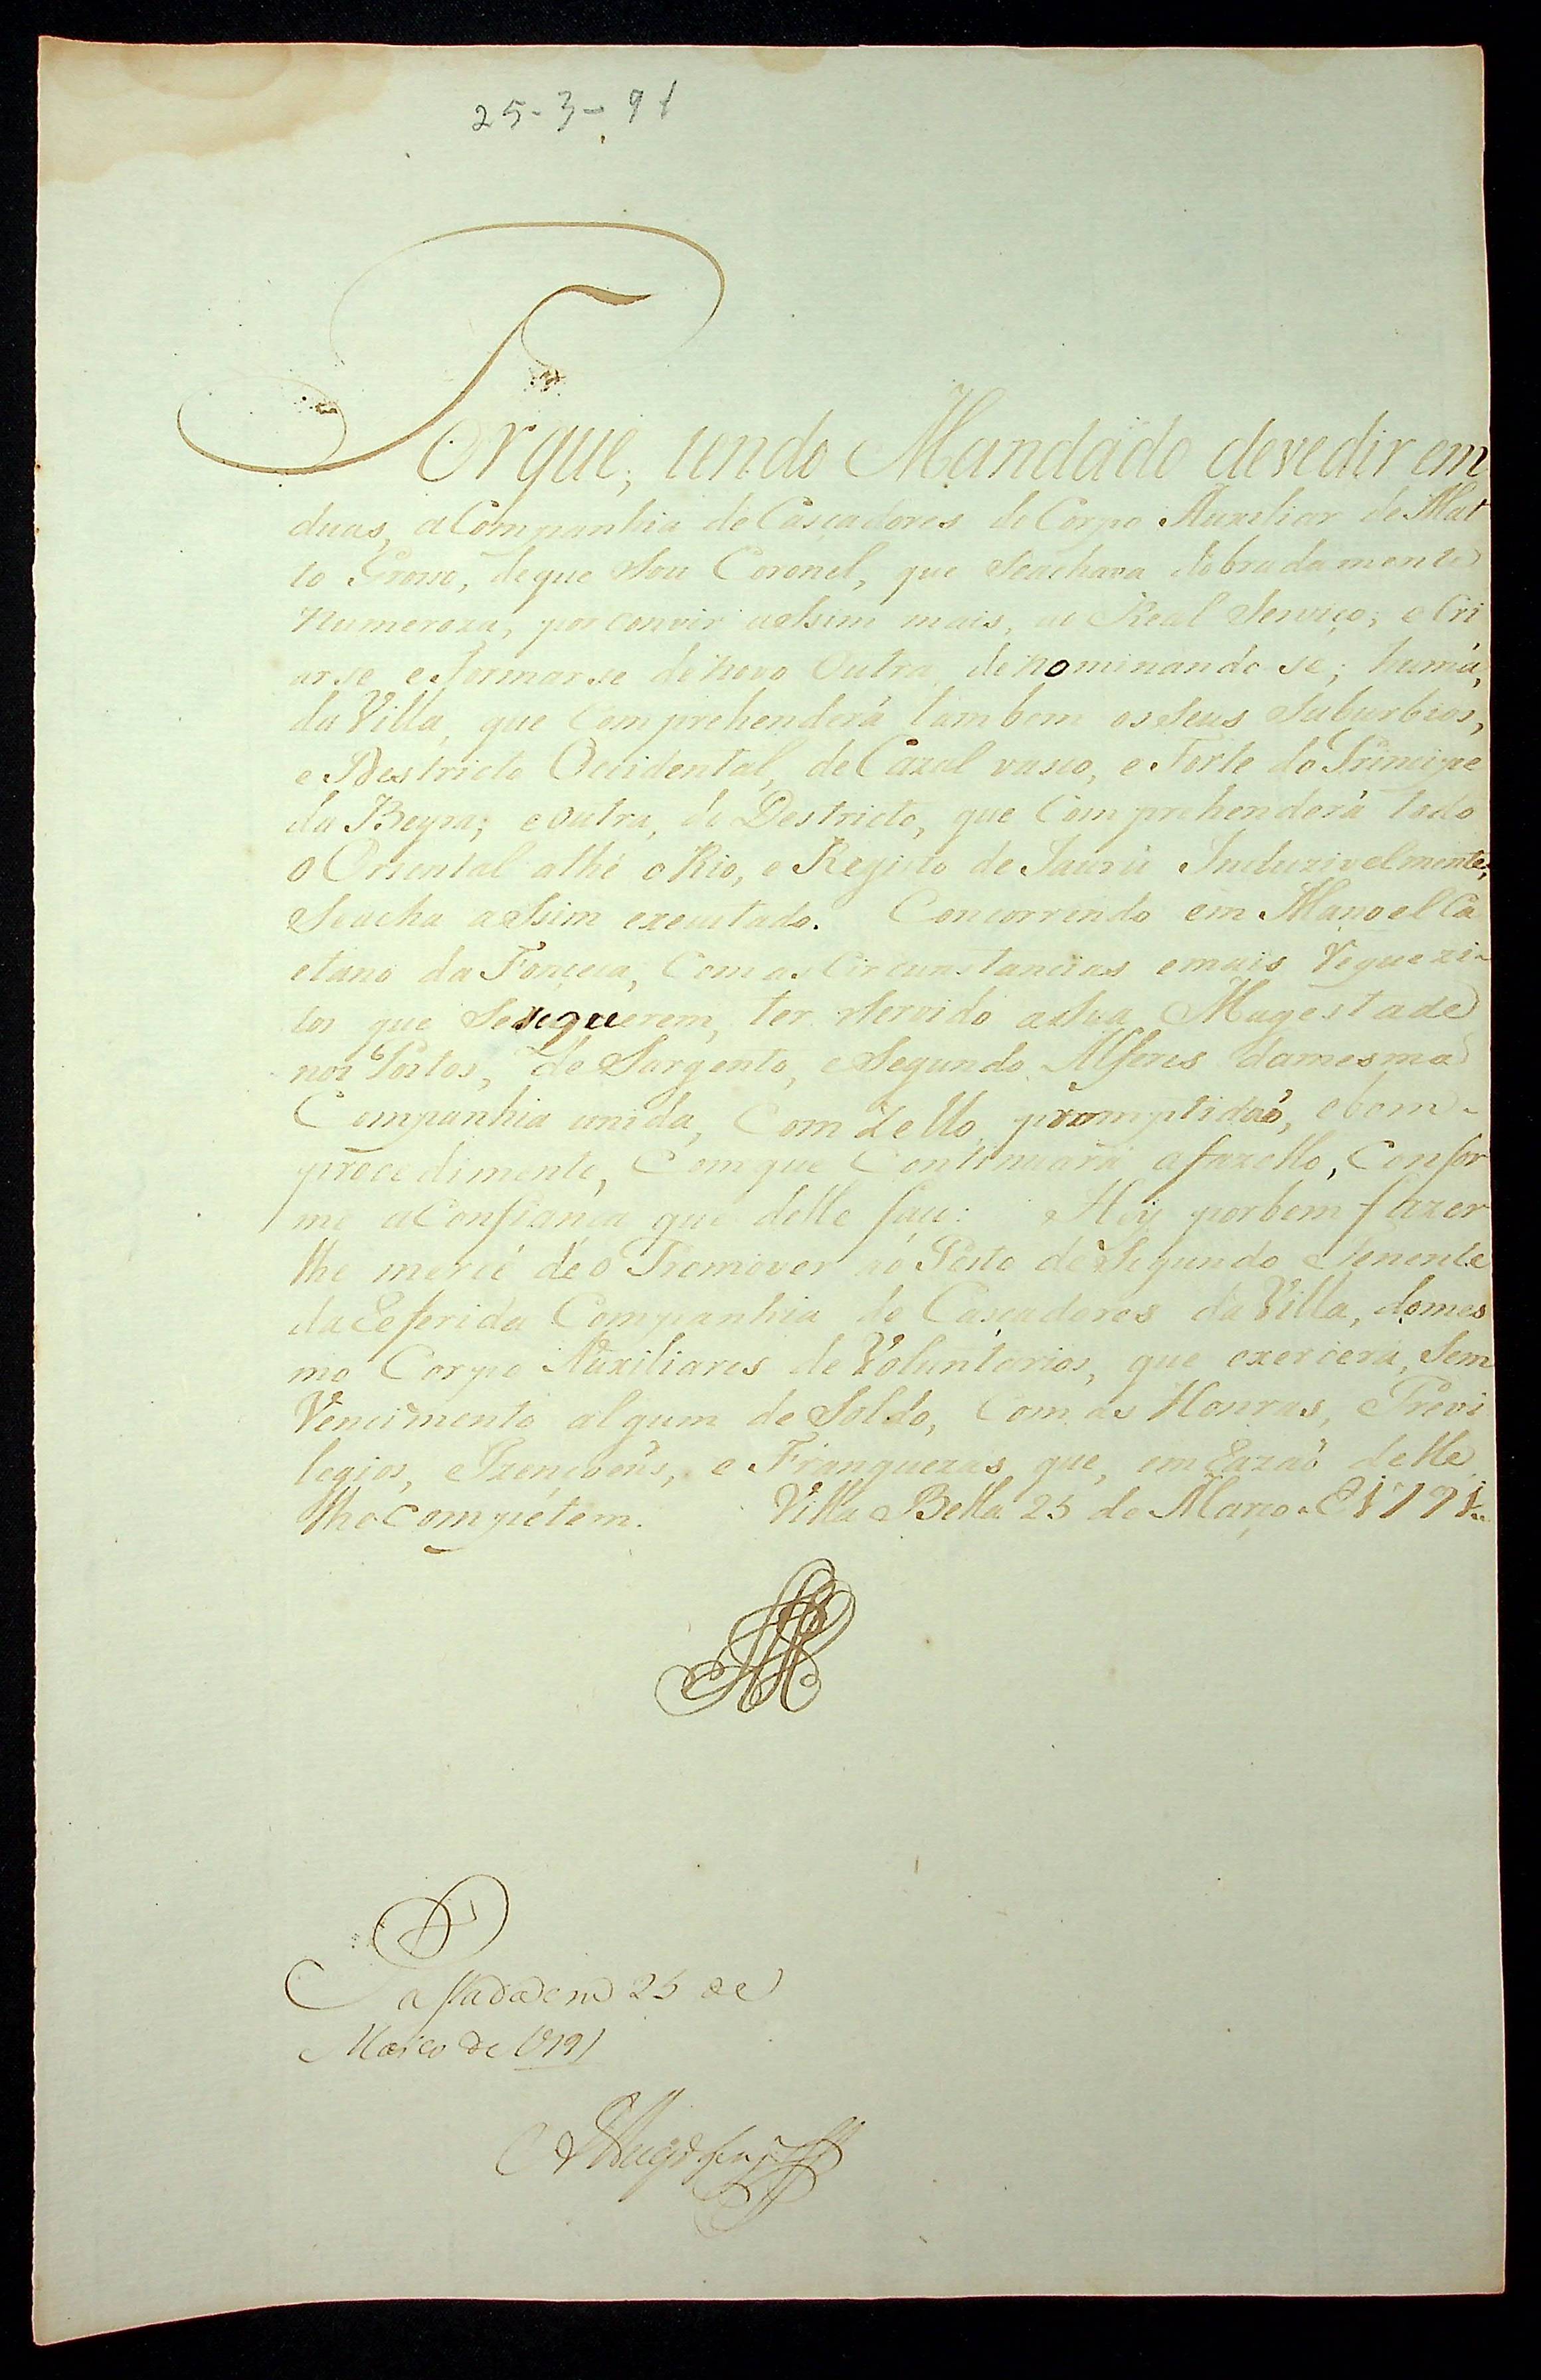 25-3-91
Porque; tendo Mandado devedir em
duas, a Companhia de Cascadores do Corpo Auxiliar de Mat
to Grosso, de que Sou Coronel, que Seachava dobradamente
Numeroza, por convir assim mais, ao Real Serviço; e Cri
arse e formarse denovo Outra denominando se; huma,
da Villa, que Comprehenderá tambem os Seus Suburbios,
e Destricto Occidental, de Cazal vasco, e Forte do Principe
da Beyra; e outra, do Destricto, que Comprehenderá todo
o Oriental athé o Rio, e Registo de Jaurú Incluzivelmente;
Seacha assim executado. Concorrendo em Manoel Ca
etano da Fonceca, Com as Circunstancias e mais Requezi-
tos que Serequerem, ter Servido a Sua Magestade
nos Postos, de Sargento, e Segundo Alferes damesma
Companhia unida, Com Zello, promptidaõ, e bom-
procedimento, Comque Continuará afazello, Confor
me a Confiança que delle faço: Hey porbem fazer
lhe mercê de o Promover ao Posto de Segundo Tenente
da Referida Companhia de Cascadores da Villa, domes
mo Corpo Auxiliares de Voluntarios, que exercerá, Sem
Vencimento algum de Soldo, Com as Honras, Previ
legios, Izençoens, e Franquezas que, em Razaõ delle
lhe Compétem. Villa Bella 25 de Março de 1791
Passada em 25 de
Março de 1791